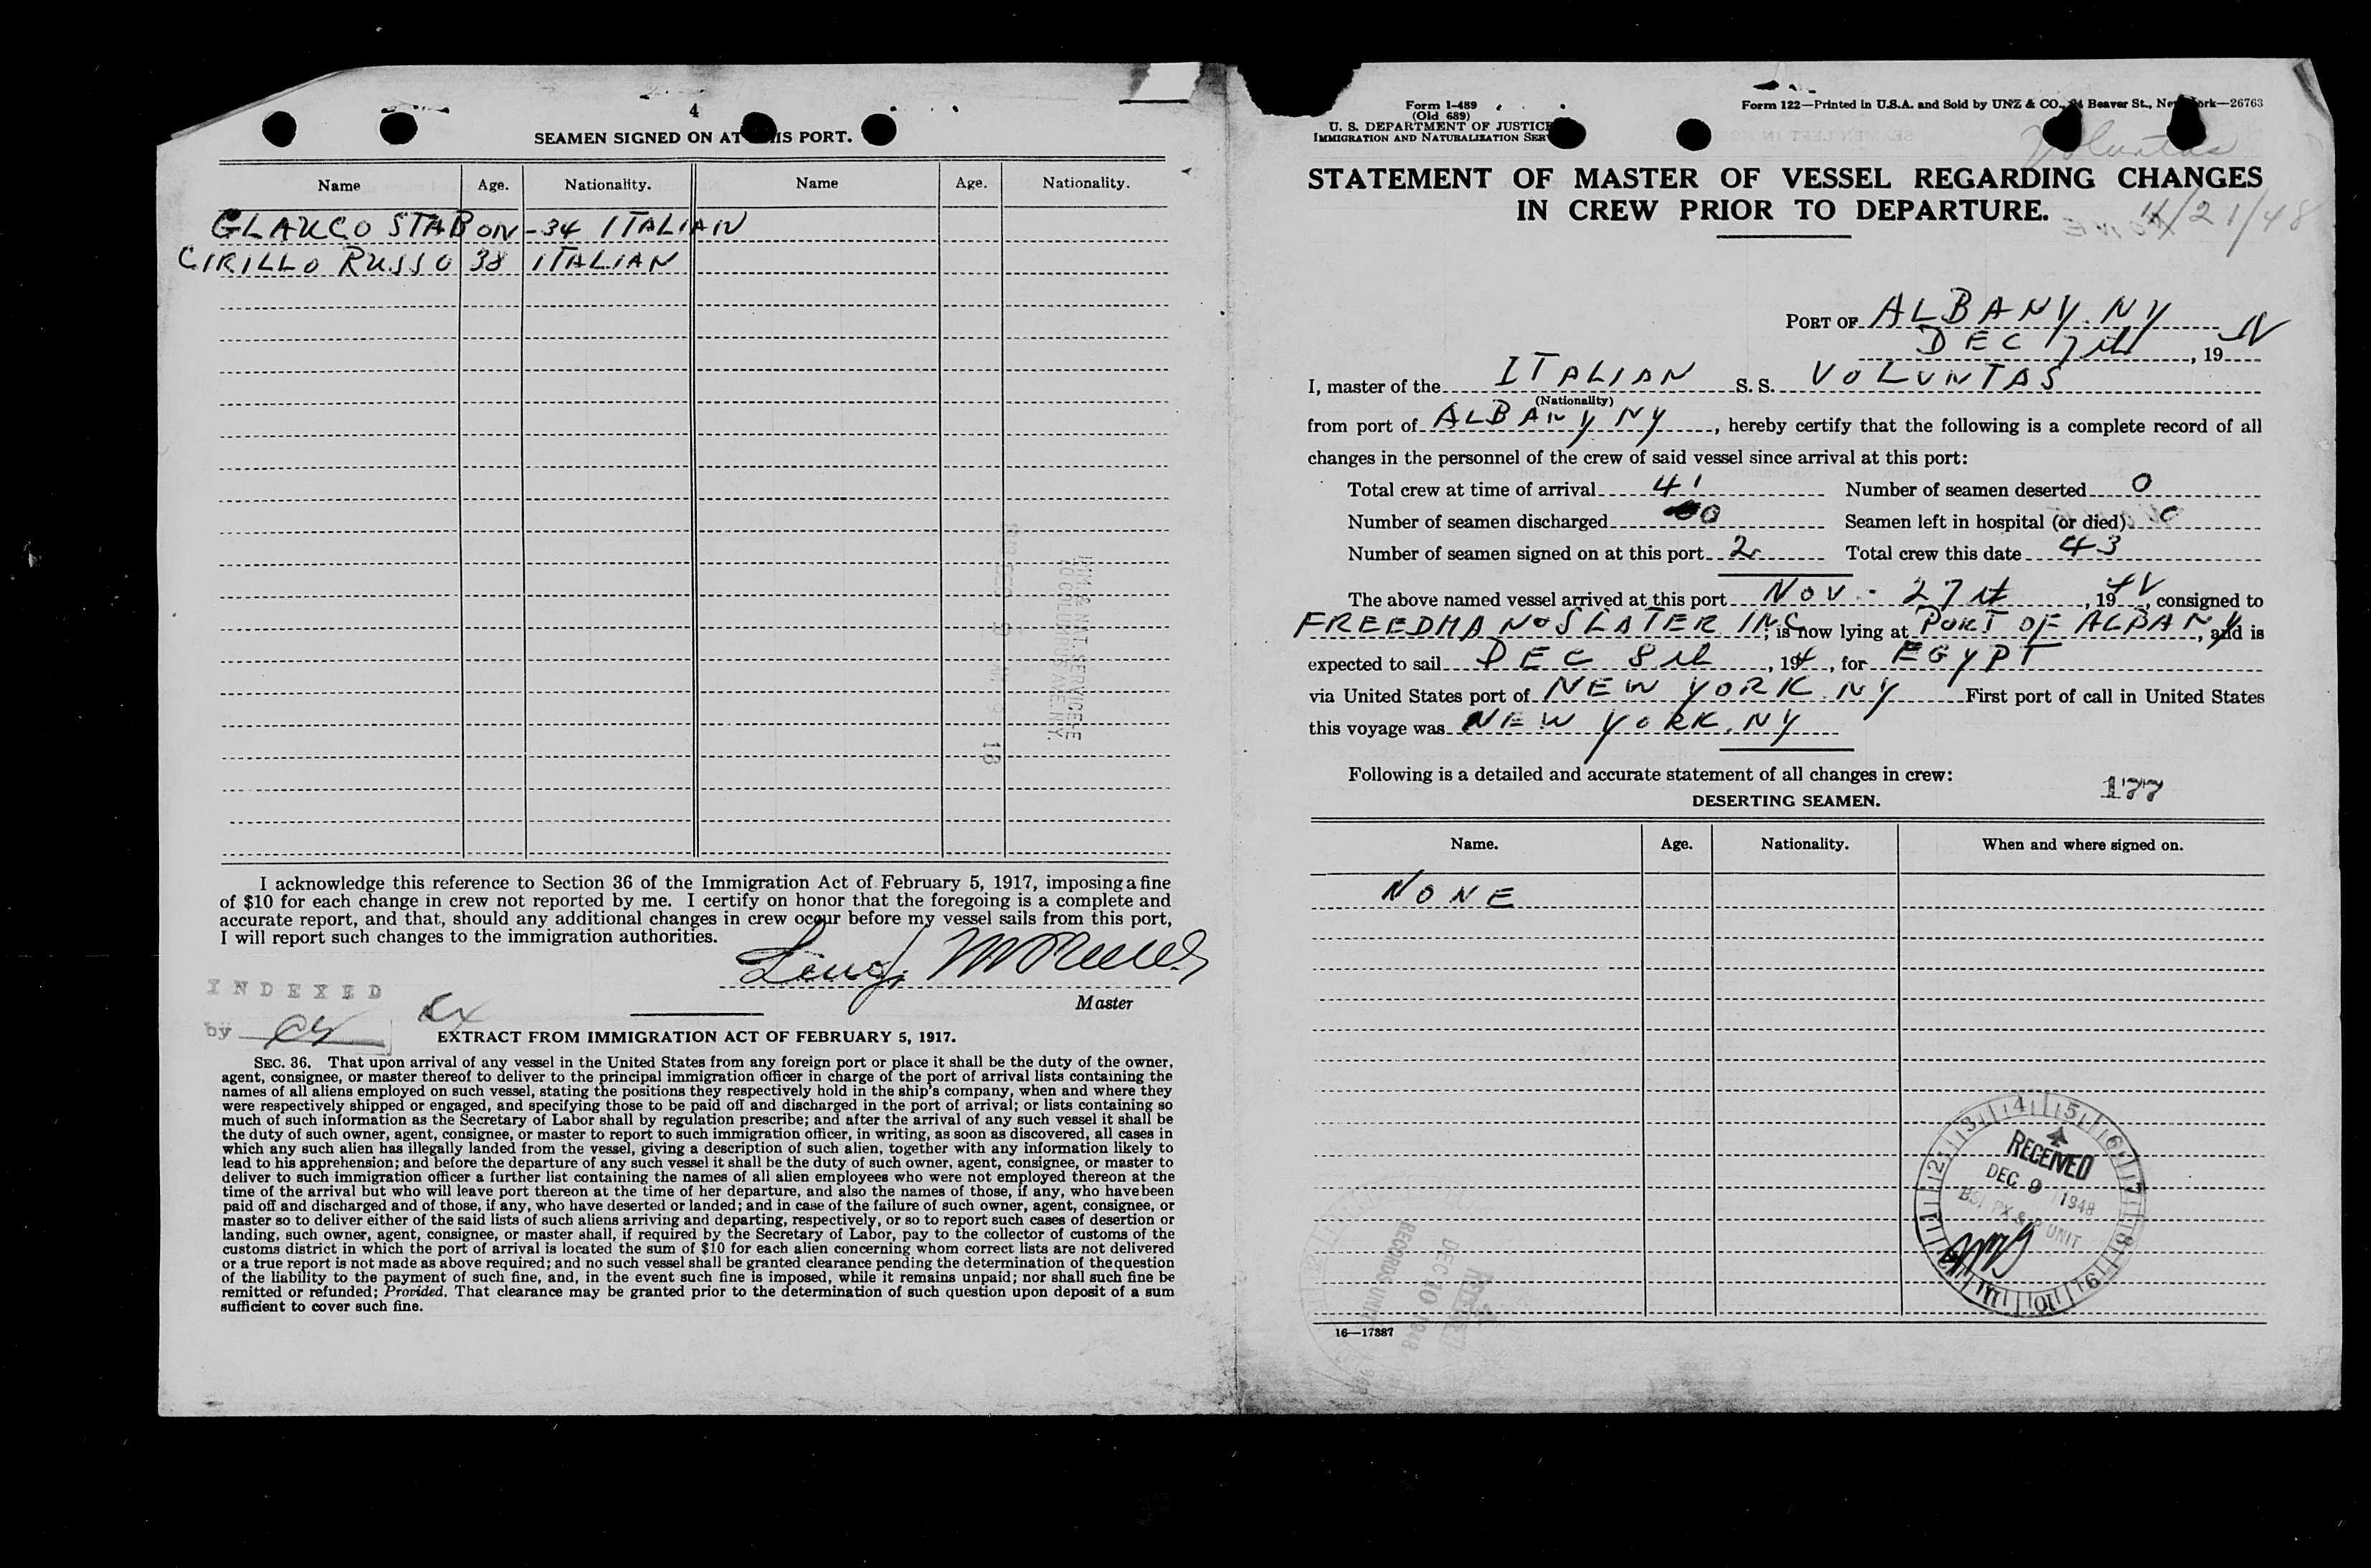 4
SEAMEN SIGNED ON AT THIS PORT.
Name Age. Nationality. Name Age. Nationality.
GLAUCO STABON - 34 ITALIAN
CIRILLO RUSSO 38 ITALIAN
I acknowledge this reference to Section 36 of the Immigration Act of February 5, 1917, imposing a fine
of $10 for each change in crew not reported by me. I certify on honor that the foregoing is a complete and
accurate report, and that, should any additional changes in crew occur before my vessel sails from this port,
I will report such changes to the immigration authorities.
Master
INDEXED
by
EXTRACT FROM IMMIGRATION ACT OF FEBRUARY 5, 1917.
SEC. 36. That upon arrival of any vessel in the United States from any foreign port or place it shall be the duty of the owner,
agent, consignee, or master thereof to deliver to the principal immigration officer in charge of the port of arrival lists containing the
names of all aliens employed on such vessel, stating the positions they respectively hold in the ship's company, when and where they
were respectively shipped or engaged, and specifying those to be paid off and discharged in the port of arrival; or lists containing so
much of such information as the Secretary of Labor shall by regulation prescribe; and after the arrival of any such vessel it shall be
the duty of such owner, agent, consignee, or master to report to such immigration officer, in writing, as soon as discovered, all cases in
which any such alien has illegally landed from the vessel, giving a description of such alien, together with any information likely to
lead to his apprehension; and before the departure of any such vessel it shall be the duty of such owner, agent, consignee, or master to
deliver to such immigration officer a further list containing the names of all alien employees who were not employed thereon at the
time of the arrival but who will leave port thereon at the time of her departure, and also the names of those, if any, who have been
paid off and discharged and of those, if any, who have deserted or landed; and in case of the failure of such owner, agent, consignee, or
master so to deliver either of the said lists of such aliens arriving and departing, respectively, or so to report such cases of desertion or
landing, such owner, agent, consignee, or master shall, if required by the Secretary of Labor, pay to the collector of customs of the
customs district in which the port of arrival is located the sum of $10 for each alien concerning whom correct lists are not delivered
or a true report is not made as above required; and no such vessel shall be granted clearance pending the determination of the question
of the liability to the payment of such fine, and, in the event such fine is imposed, while it remains unpaid; nor shall such fine be
remitted or refunded; Provided, That clearance may be granted prior to the determination of such question upon deposit of a sum
sufficient to cover such fine.
Form I-489
(Old 689)
U. S. DEPARTMENT OF JUSTICE
IMMIGRATION AND NATURALIZATION SER
Form 122—Printed in U.S.A. and Sold by UNZ & CO., 24 Beaver St., New York—26763
Voluntas
11/21/48
STATEMENT OF MASTER OF VESSEL REGARDING CHANGES
IN CREW PRIOR TO DEPARTURE.
PORT OF ALBANY. NY
DEC 7th, 19
I, master of the ITALIAN S. S. VOLUNTAS
(Nationality)
from port of ALBANY NY, hereby certify that the following is a complete record of all
changes in the personnel of the crew of said vessel since arrival at this port:
Total crew at time of arrival 41 Number of seamen deserted 0
Number of seamen discharged 0 Seamen left in hospital (or died) 0
Number of seamen signed on at this port 2 Total crew this date 43
The above named vessel arrived at this port NOV - 27th, 19, consigned to
FREEDMAN & SLATER INC, is now lying at PORT OF ALBANY, and is
expected to sail DEC 8th, 194, for EGYPT
via United States port of NEW YORK. NY First port of call in United States
this voyage was NEW YORK. NY
Following is a detailed and accurate statement of all changes in crew:
177
DESERTING SEAMEN.
Name. Age. Nationality. When and where signed on.
NONE
RECEIVED
DEC 9 1948
BSI PX & P UNIT
RECEIVED
DEC 10 1948
RECORDS UNIT
16—17387